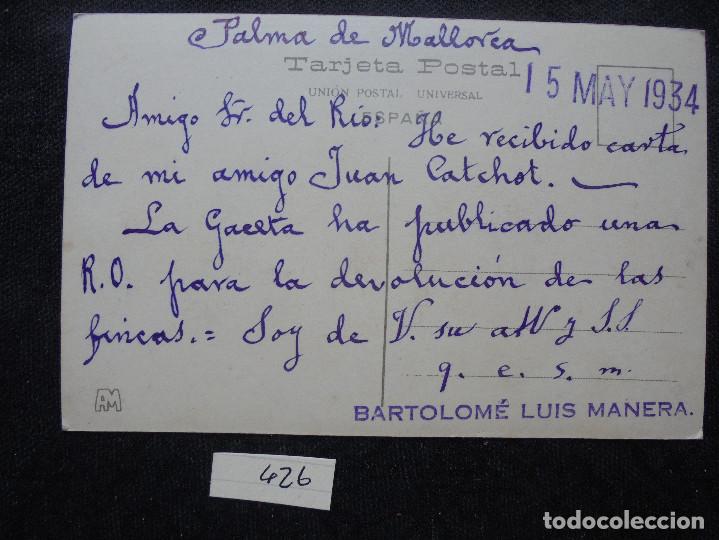 Palma de Mallorca
Tarjeta Postal
15 MAY 1934
UNIÓN POSTAL UNIVERSAL
ESPAÑA
Amigo Sr. del Río: He recibido carta
de mi amigo Juan Catchot. —
La Gaceta ha publicado una
R.O. para la devolución de las
fincas.= Soy de V. su att y S.S.
q. e. s. m.
AM
BARTOLOMÉ LUIS MANERA.
426
todocoleccion